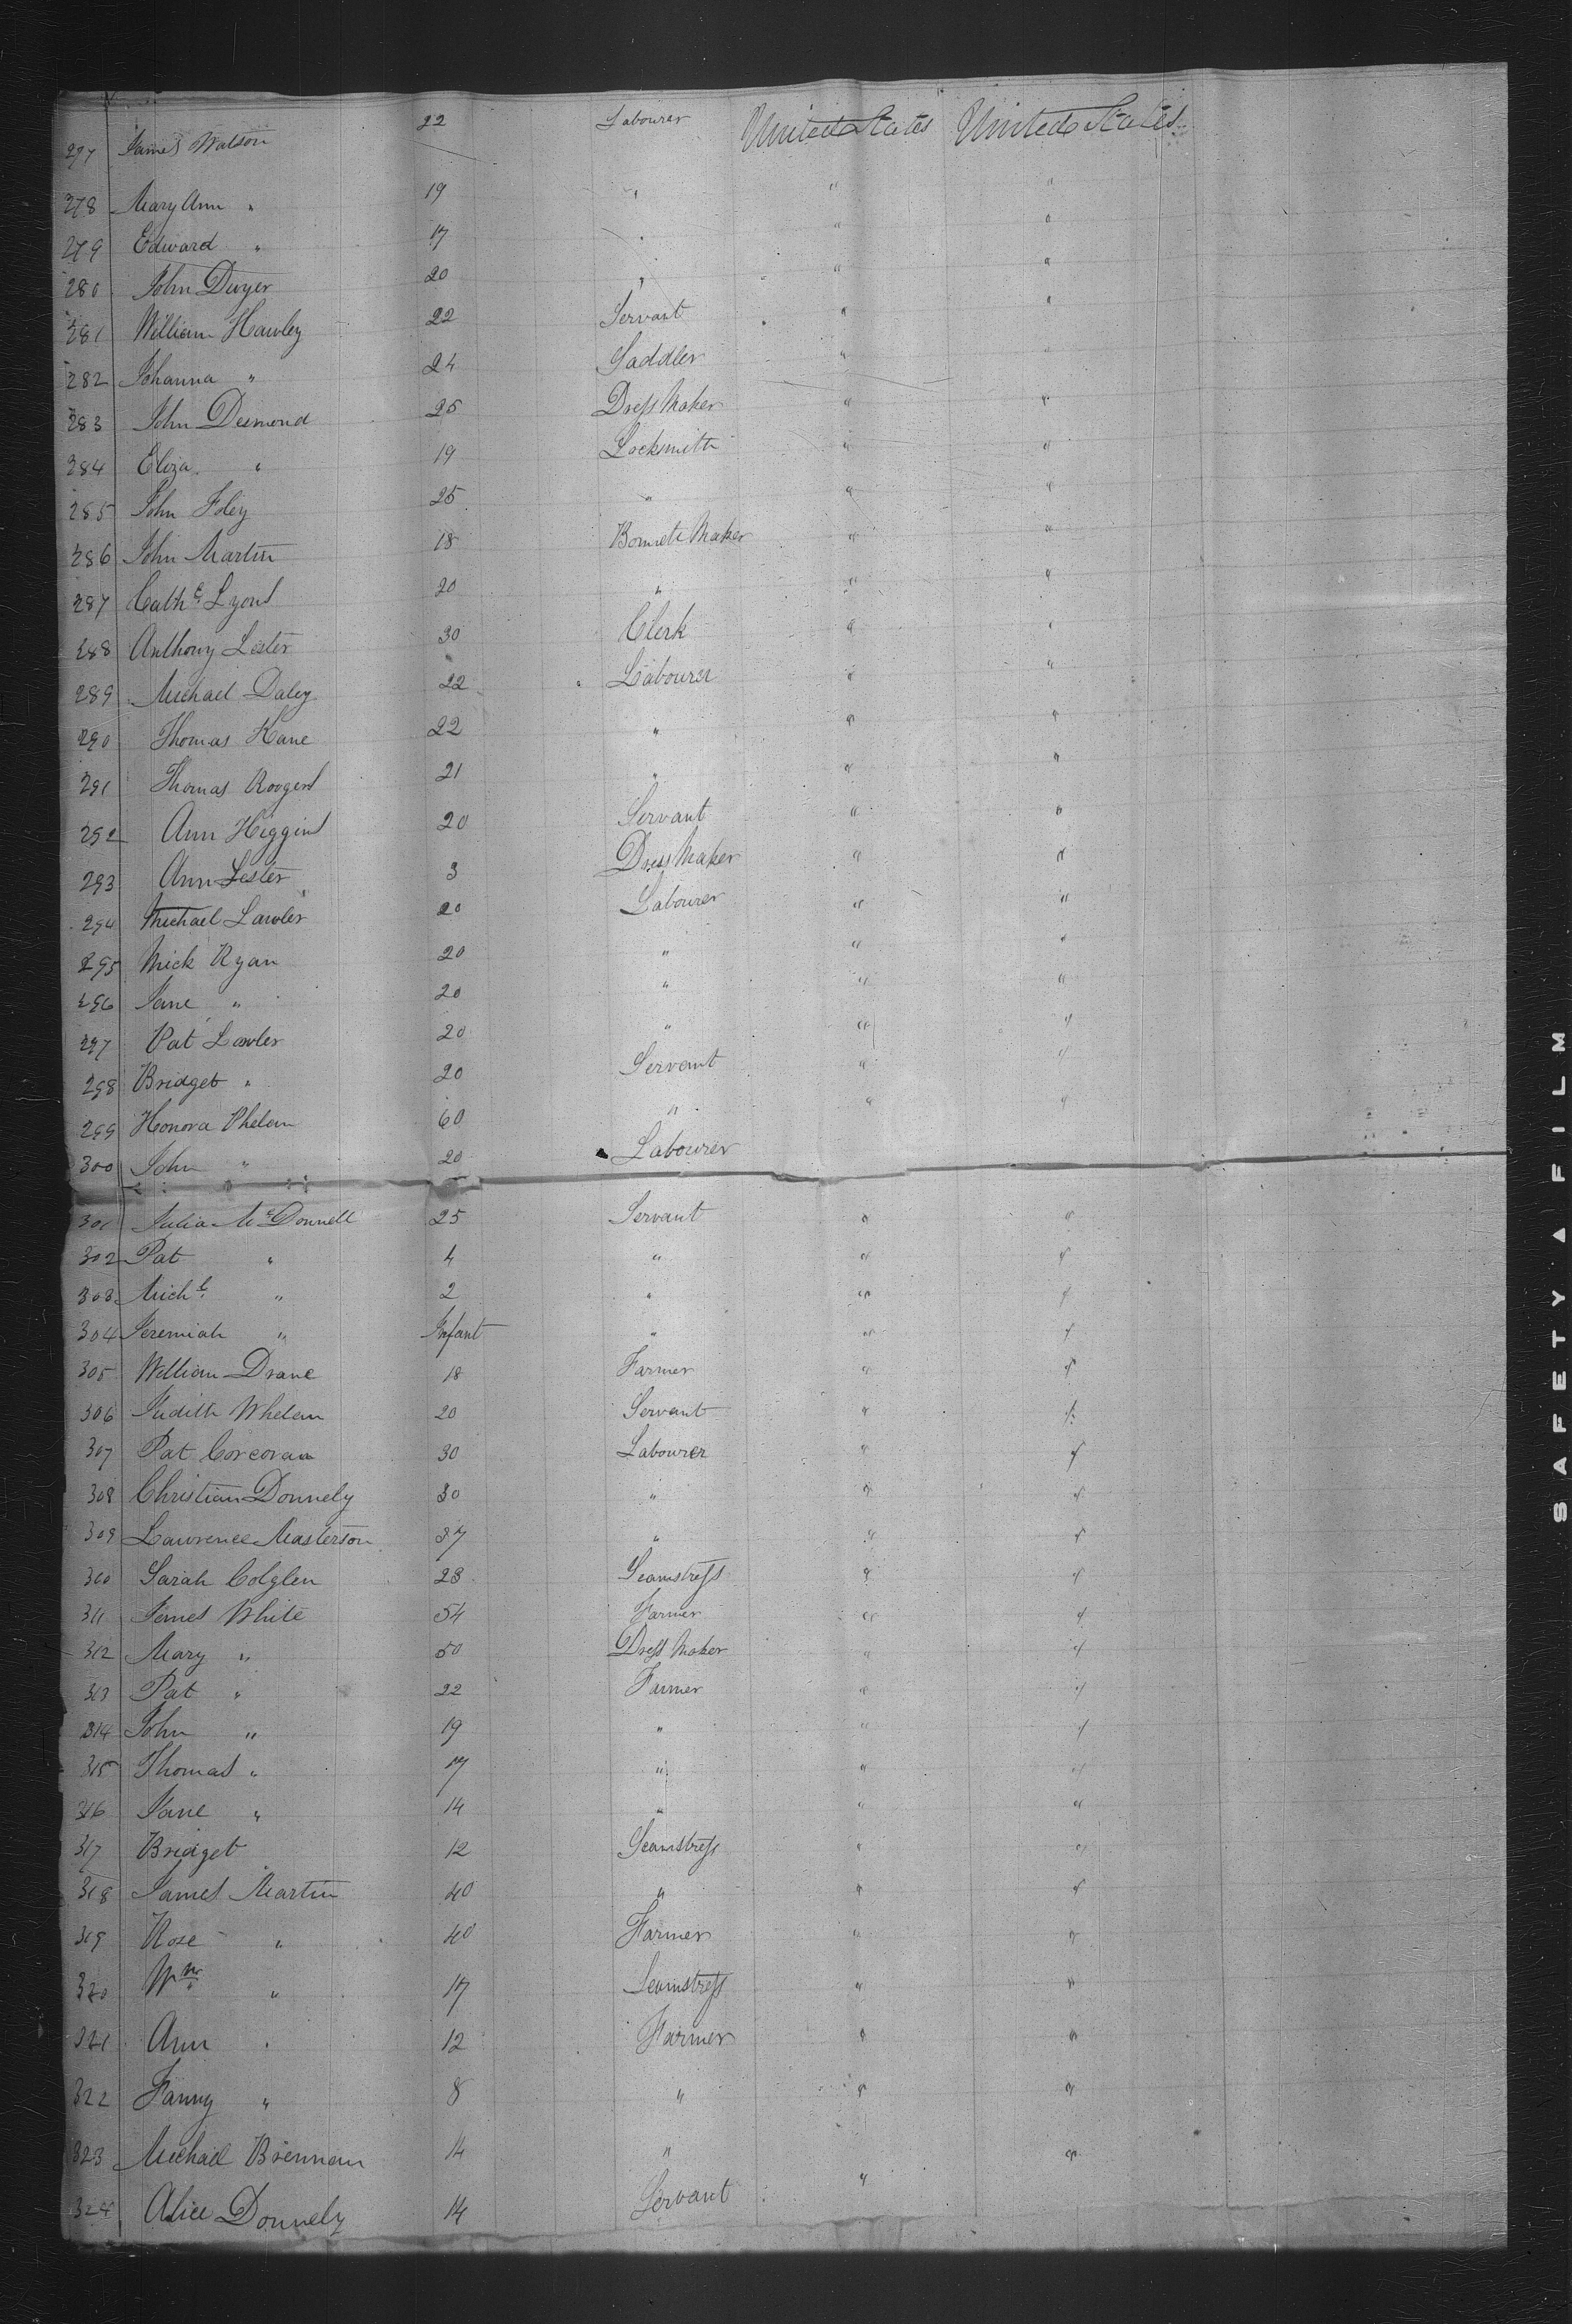 277 James Watson 22 Labourer United States United States
278 Mary Ann " 19 " " "
279 Edward " 17 " " "
280 John Dwyer 20 " " "
281 William Hawley 22 Servant " "
282 Johanna " 24 Saddler " "
283 John Desmond 25 Dress Maker " "
284 Eliza " 19 Locksmith " "
285 John Foley 25 " " "
286 John Martin 18 Bonnett Maker " "
287 Cathe Lyons 20 " " "
288 Anthony Lester 30 Clerk " "
289 Michael Daley 22 Labourer " "
290 Thomas Kane 22 " " "
291 Thomas Roogers 21 " " "
292 Ann Higgins 20 Servant " "
293 Ann Lester 3 Dress Maker " "
294 Michael Lawler 20 Labourer " "
295 Mick Ryan 20 " " "
296 Jane " 20 " " "
297 Pat Lawler 20 " " "
298 Bridget " 20 Servant " "
299 Honora Phelan 60 " " "
300 John " 20 Labourer
301 Julia McDonnell 25 Servant " "
302 Pat " 4 " " "
303 Michl " 2 " " "
304 Jeremiah " Infant " " "
305 William Drane 18 Farmer " "
306 Judith Whelan 20 Servant " "
307 Pat Corcoran 30 Labourer " "
308 Christian Donnely 30 " " "
309 Lawrence Masterson 37 " " "
310 Sarah Colglen 23 Seamstress " "
311 James White 54 Farmer " "
312 Mary " 50 Dress Maker " "
313 Pat " 22 Farmer " "
314 John " 19 " " "
315 Thomas " 17 " " "
316 Jane " 14 " " "
317 Bridget 12 Seamstress " "
318 James Martin 40 " " "
319 Rose " 40 Farmer " "
320 Wm " 17 Seamstress " "
321 Ann " 12 Farmer " "
322 Fanny " 8 " " "
323 Michael Brennan 14 " " "
324 Alice Donnely 14 Servant
SAFETY ▲ FILM